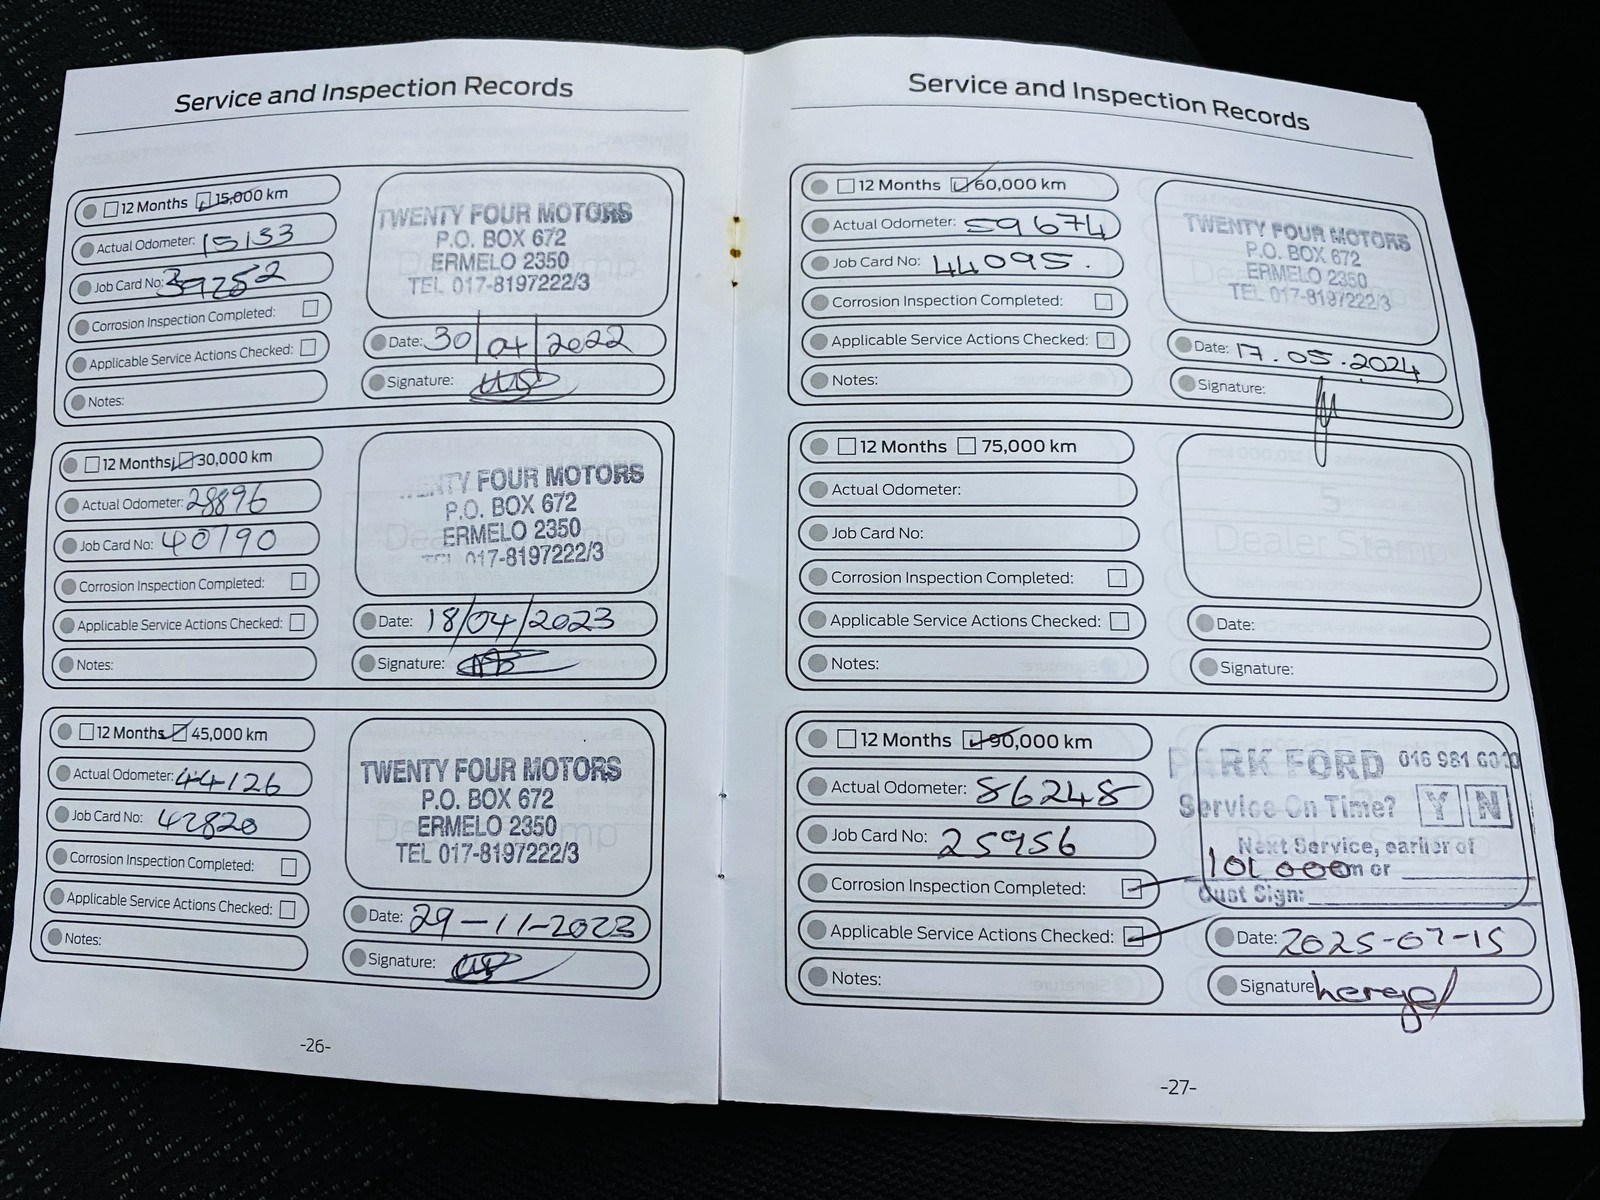 Service and Inspection Records
12 Months 15,000 km
Actual Odometer: 15133
Job Card No: 39252
Corrosion Inspection Completed:
Applicable Service Actions Checked:
Notes:
TWENTY FOUR MOTORS
P.O. BOX 672
ERMELO 2350
TEL 017-8197222/3
Date: 30/04/2022
Signature:
12 Months 30,000 km
Actual Odometer: 28896
Job Card No: 40790
Corrosion Inspection Completed:
Applicable Service Actions Checked:
Notes:
TWENTY FOUR MOTORS
P.O. BOX 672
ERMELO 2350
TEL 017-8197222/3
Date: 18/04/2023
Signature:
12 Months 45,000 km
Actual Odometer: 44126
Job Card No: 42820
Corrosion Inspection Completed:
Applicable Service Actions Checked:
Notes:
TWENTY FOUR MOTORS
P.O. BOX 672
ERMELO 2350
TEL 017-8197222/3
Date: 29-11-2023
Signature:
-26-
Service and Inspection Records
12 Months 60,000 km
Actual Odometer: 59674
Job Card No: 44095.
Corrosion Inspection Completed:
Applicable Service Actions Checked:
Notes:
TWENTY FOUR MOTORS
P.O. BOX 672
ERMELO 2350
TEL 017-8197222/3
Date: 17.05.2024
Signature:
12 Months 75,000 km
Actual Odometer:
Job Card No:
Corrosion Inspection Completed:
Applicable Service Actions Checked:
Notes:
Date:
Signature:
12 Months 90,000 km
Actual Odometer: 86248
Job Card No: 25956
Corrosion Inspection Completed:
Applicable Service Actions Checked:
Notes:
PARK FORD 016 981
Service On Time? Y N
Next Service, earlier of
or
Cust Sign:
Date: 2025-07-15
Signature
-27-